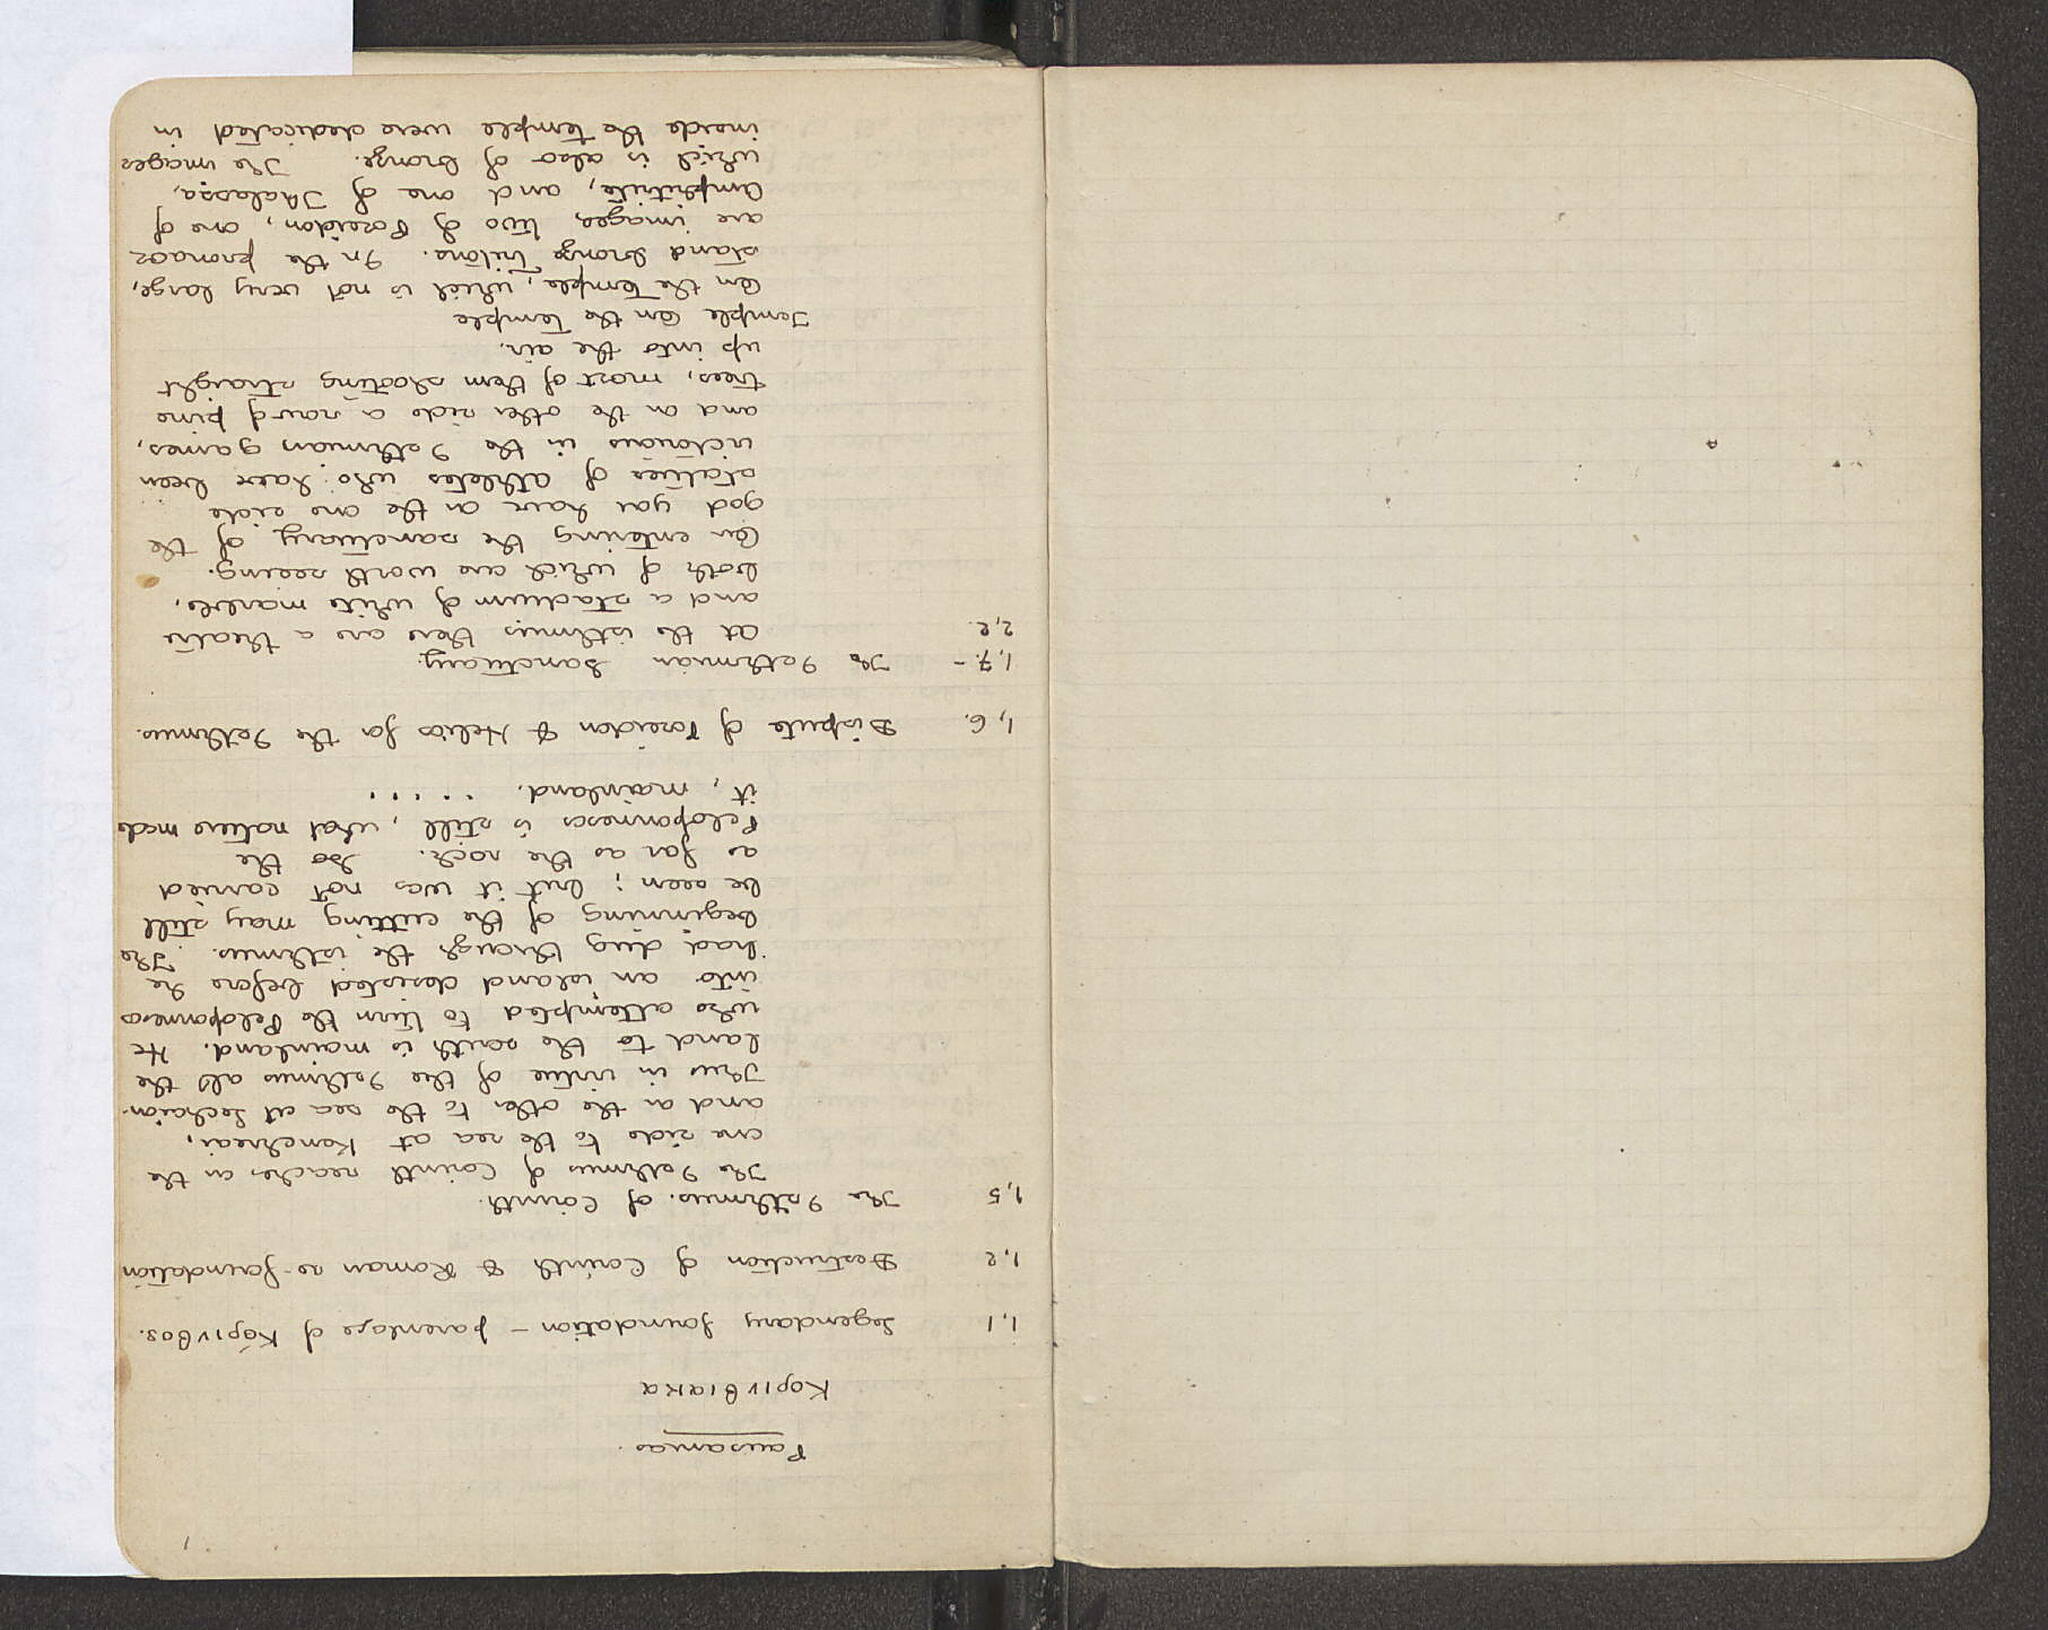 1
Pausanias.
Κορινθιακα
1,1 Legendary foundation – parentage of Κόρινθος.
1,2 Destruction of Corinth & Roman re-foundation
1,5 The Isthmus of Corinth.
The Isthmus of Corinth reaches on the
one side to the sea at Kenchreai,
and on the other to the sea at Lechaion.
Thus in virtue of the Isthmus all the
land to the south is mainland. He
who attempted to turn the Peloponnesos
into an island desisted before he
had dug through the isthmus. The
beginning of the cutting may still
be seen; but it was not carried
as far as the rock. So the
Peloponnesos is still, what nature made
it, mainland. . . . . .
1,6. Dispute of Poseidon & Helios for the Isthmus.
1,7.– The Isthmian Sanctuary.
2,2. At the isthmus there are a theatre
and a stadium of white marble,
both of which are worth seeing.
On entering the sanctuary of the
god you have on the one side
statues of athletes who have been
victorious in the Isthmian games,
and on the other side a row of pine
trees, most of them shooting straight
up into the air.
Temple On the temple
On the temple, which is not very large,
stand bronze Tritons. In the pronaos
are images, two of Poseidon, one of
Amphitrite, and one of Thalassa,
which is also of bronze. The images
inside the temple were dedicated in